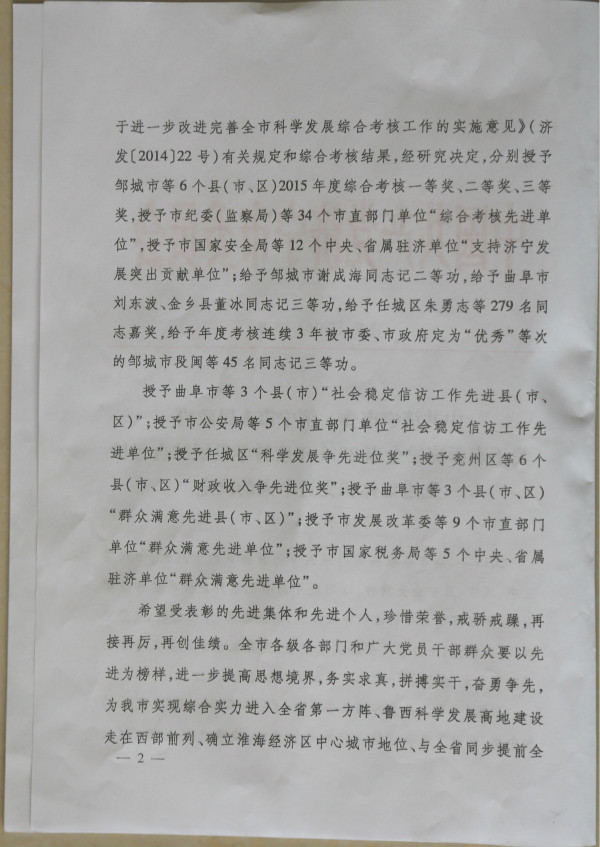 于进一步改进完善全市科学发展综合考核工作的实施意见》(济
发〔2014〕22号)有关规定和综合考核结果,经研究决定,分别授予
邹城市等6个县(市、区)2015年度综合考核一等奖、二等奖、三等
奖,授予市纪委(监察局)等34个市直部门单位“综合考核先进单
位”,授予市国家安全局等12个中央、省属驻济单位“支持济宁发
展突出贡献单位”;给予邹城市谢成海同志记二等功,给予曲阜市
刘东波、金乡县董冰同志记三等功,给予任城区朱勇志等279名同
志嘉奖,给予年度考核连续3年被市委、市政府定为“优秀”等次
的邹城市段闽等45名同志记三等功。
授予曲阜市等3个县(市)“社会稳定信访工作先进县(市、
区)”;授予市公安局等5个市直部门单位“社会稳定信访工作先
进单位”;授予任城区“科学发展争先进位奖”;授予兖州区等6个
县(市、区)“财政收入争先进位奖”;授予曲阜市等3个县(市、区)
“群众满意先进县(市、区)”;授予市发展改革委等9个市直部门
单位“群众满意先进单位”;授予市国家税务局等5个中央、省属
驻济单位“群众满意先进单位”。
希望受表彰的先进集体和先进个人,珍惜荣誉,戒骄戒躁,再
接再厉,再创佳绩。全市各级各部门和广大党员干部群众要以先
进为榜样,进一步提高思想境界,务实求真,拼搏实干,奋勇争先,
为我市实现综合实力进入全省第一方阵、鲁西科学发展高地建设
走在西部前列、确立淮海经济区中心城市地位、与全省同步提前全
— 2 —